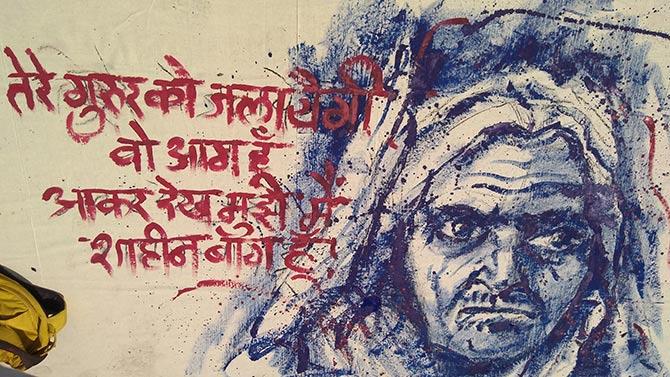 तेरे गुरुर को जलायेगी
वो आग हूँ
आकर देख मुझे मैं
शाहीन बाग हूँ!